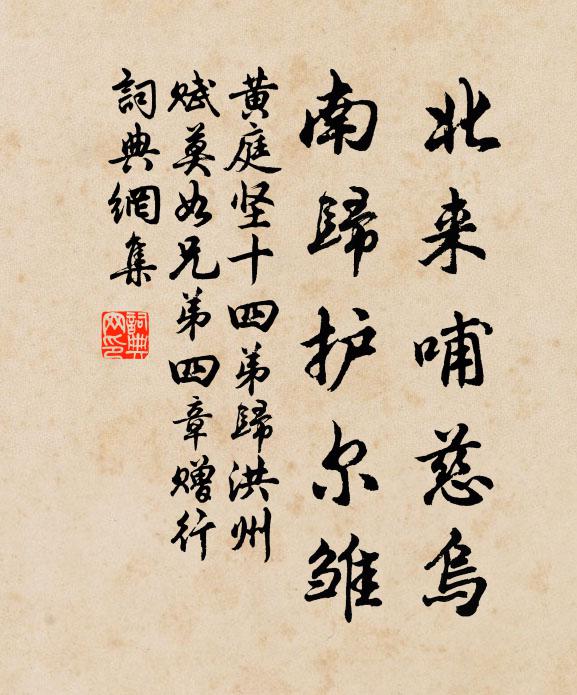 北来哺慈乌
南歸护尔雏
黄庭坚十四弟歸洪州
赋莫如兄弟四章赠行
詞典網集
詞典